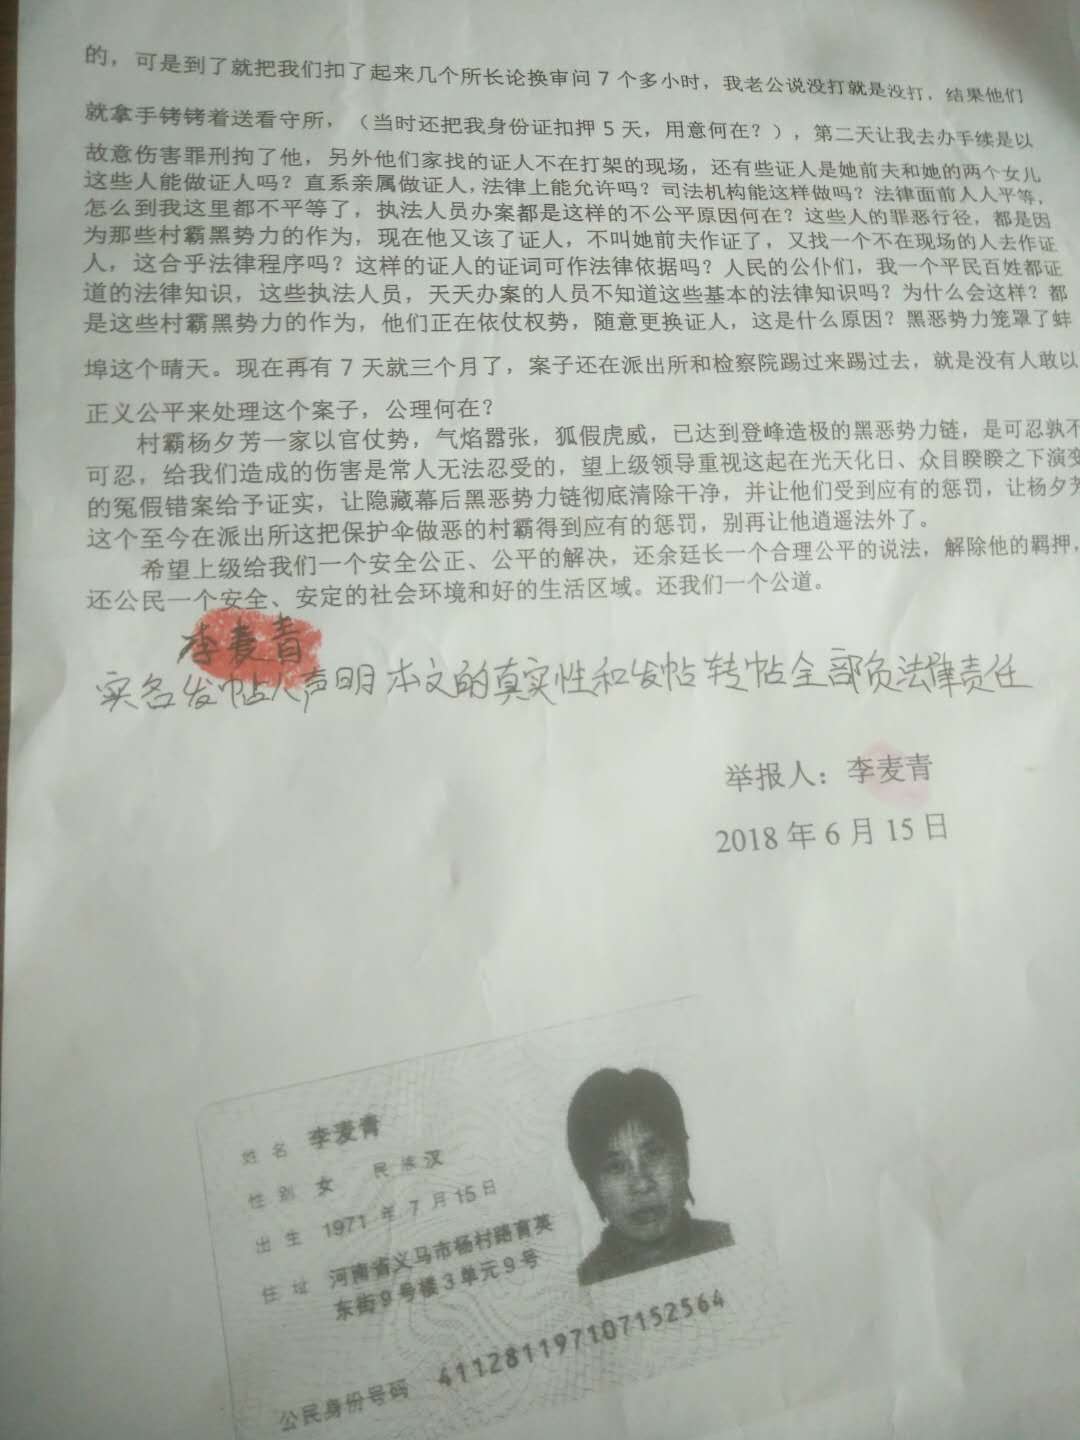 的，可是到了就把我们扣了起来几个所长论换审问 7 个多小时，我老公说没打就是没打，结果他们
就拿手铐铐着送看守所，（当时还把我身份证扣押 5 天，用意何在？），第二天让我去办手续是以
故意伤害罪刑拘了他，另外他们家找的证人不在打架的现场，还有些证人是她前夫和她的两个女儿
这些人能做证人吗？直系亲属做证人，法律上能允许吗？司法机构能这样做吗？法律面前人人平等，
怎么到我这里都不平等了，执法人员办案都是这样的不公平原因何在？这些人的罪恶行径，都是因
为那些村霸黑势力的作为，现在他又该了证人，不叫她前夫作证了，又找一个不在现场的人去作证
人，这合乎法律程序吗？这样的证人的证词可作法律依据吗？人民的公仆们，我一个平民百姓都证
道的法律知识，这些执法人员，天天办案的人员不知道这些基本的法律知识吗？为什么会这样？都
是这些村霸黑势力的作为，他们正在依仗权势，随意更换证人，这是什么原因？黑恶势力笼罩了蚌
埠这个晴天。现在再有 7 天就三个月了，案子还在派出所和检察院踢过来踢过去，就是没有人敢以
正义公平来处理这个案子，公理何在？
村霸杨夕芳一家以官仗势，气焰嚣张，狐假虎威，已达到登峰造极的黑恶势力链，是可忍孰不
可忍，给我们造成的伤害是常人无法忍受的，望上级领导重视这起在光天化日、众目睽睽之下演变
的冤假错案给予证实，让隐藏幕后黑恶势力链彻底清除干净，并让他们受到应有的惩罚，让杨夕芳
这个至今在派出所这把保护伞做恶的村霸得到应有的惩罚，别再让他逍遥法外了。
希望上级给我们一个安全公正、公平的解决，还余廷长一个合理公平的说法，解除他的羁押，
还公民一个安全、安定的社会环境和好的生活区域。还我们一个公道。
李麦青
实名发帖人声明本文的真实性和发帖转帖全部负法律责任
举报人：李麦青
2018 年 6 月 15 日
姓名 李麦青
性别 女 民族 汉
出生 1971 年 7 月 15 日
住址 河南省义马市杨村路育英
东街9号楼3单元9号
公民身份号码 411281197107152564